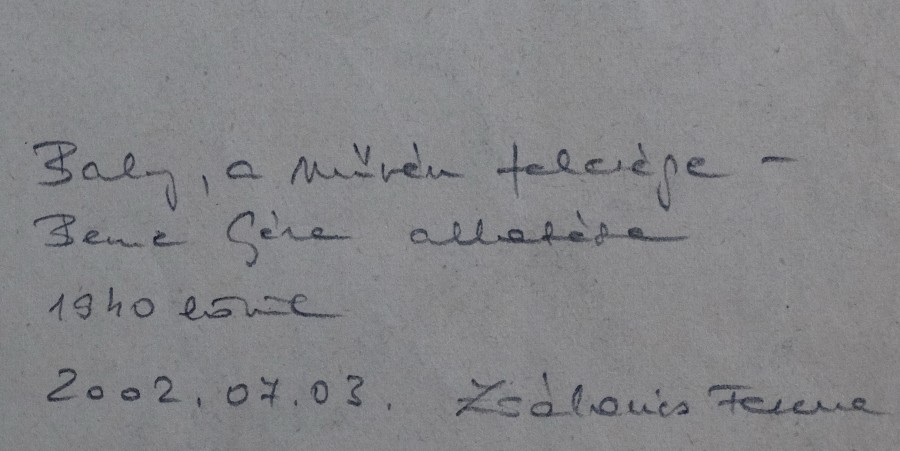 Baby, a művén felesége -
Bene Géza alkotása
1940 körül
2002. 07. 03. Zsákovics Ferenc